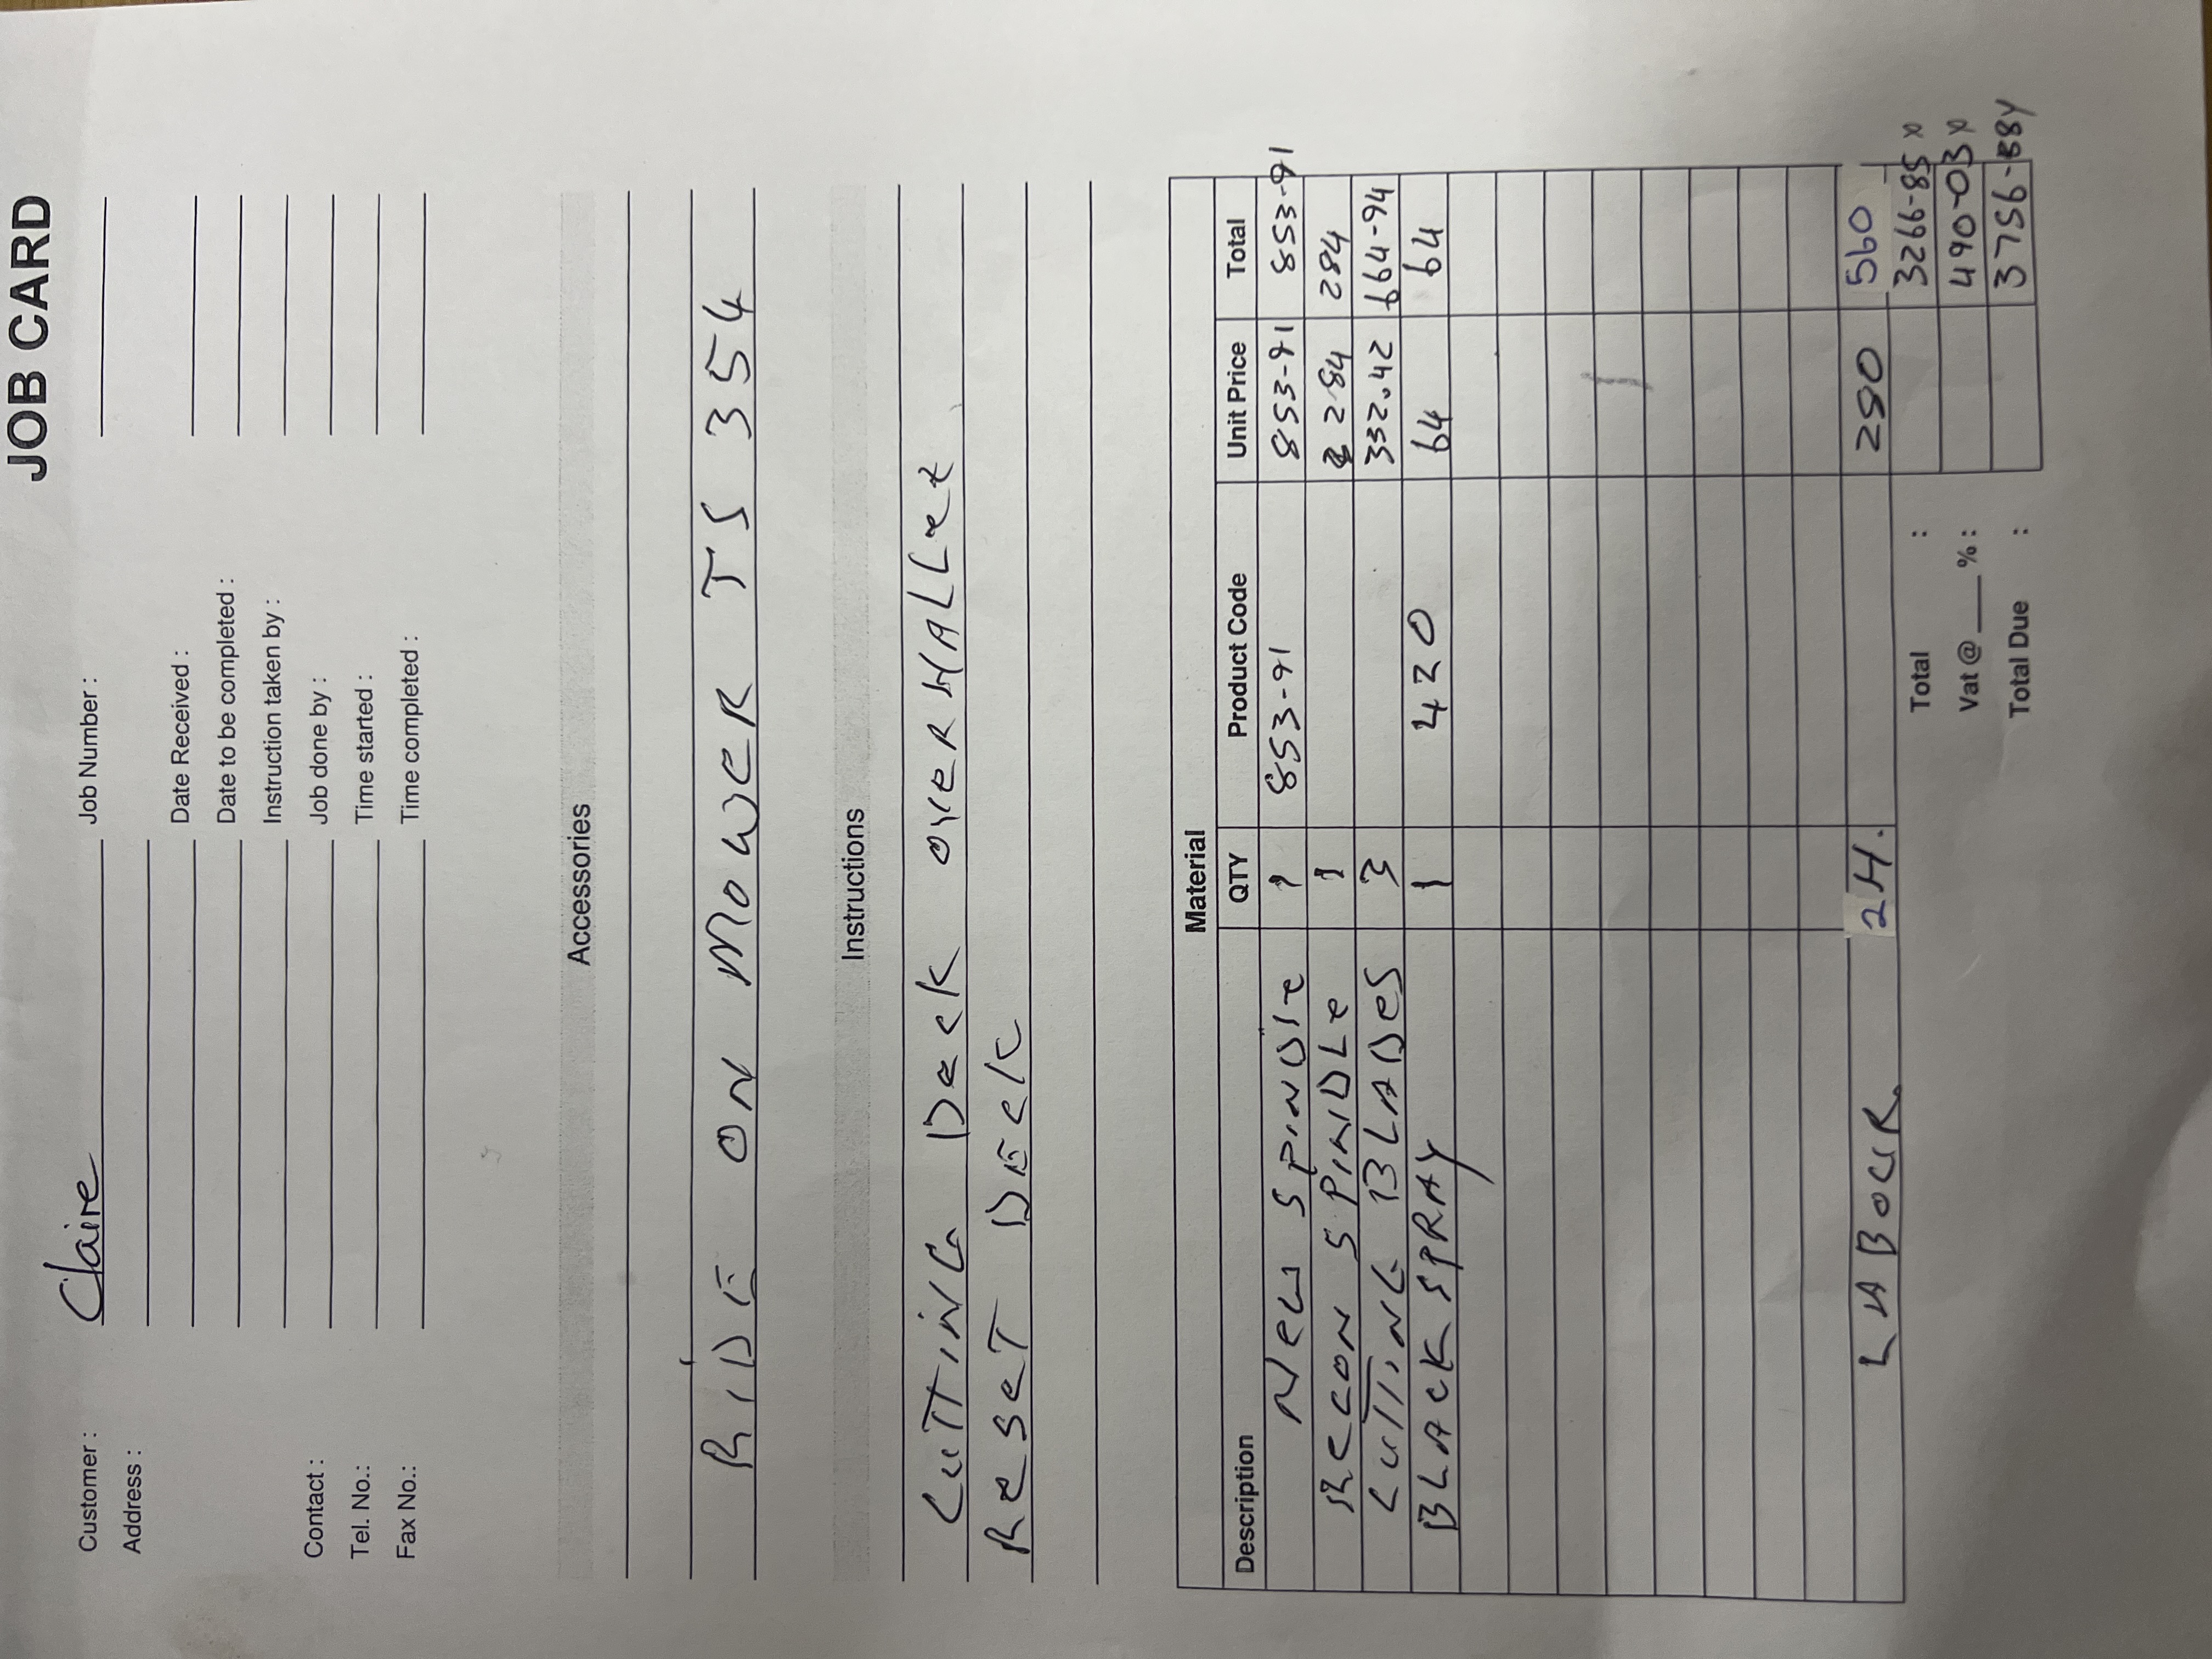 JOB CARD
Customer : Claire Job Number :
Address :
Date Received :
Date to be completed :
Instruction taken by :
Contact : Job done by :
Tel. No.: Time started :
Fax No.: Time completed :
Accessories
RIDE ON MOWER TS 354
Instructions
CUTTING Deck OVERHALLet
Reset DEck
Material
Description QTY Product Code Unit Price Total
New SPINDle 1 853-91 853-91 853-91
RECON SPINDLe 1 284 284
CUTTING BLADeS 3 332.42 664-94
BLACK SPRAY 1 420 64 64
LABOUR 2H. 280 560
Total : 3266-85
Vat @ ___ % : 490-03
Total Due : 3756-88